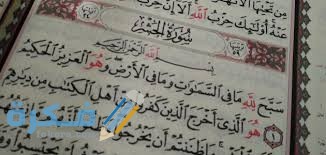 مِن تَحْتِهَا
عَنْهُ أُوْلَٰئِكَ حِزْبُ اللَّهِ أَلَا إِنَّ حِزْبَ
سُورَةُ الْحَشْرِ
بِسْمِ اللَّهِ الرَّحْمَٰنِ الرَّحِيمِ
سَبَّحَ لِلَّهِ مَا فِي السَّمَٰوَٰتِ وَمَا فِي الْأَرْضِ وَهُوَ الْعَزِيزُ الْحَكِيمُ
هُوَ الَّذِي أَخْرَجَ الَّذِينَ كَفَرُوا مِنْ أَهْلِ الْكِتَٰبِ مِن دِيَٰرِهِمْ
ظَنَنتُمْ أَن يَخْرُجُوا
فكرة